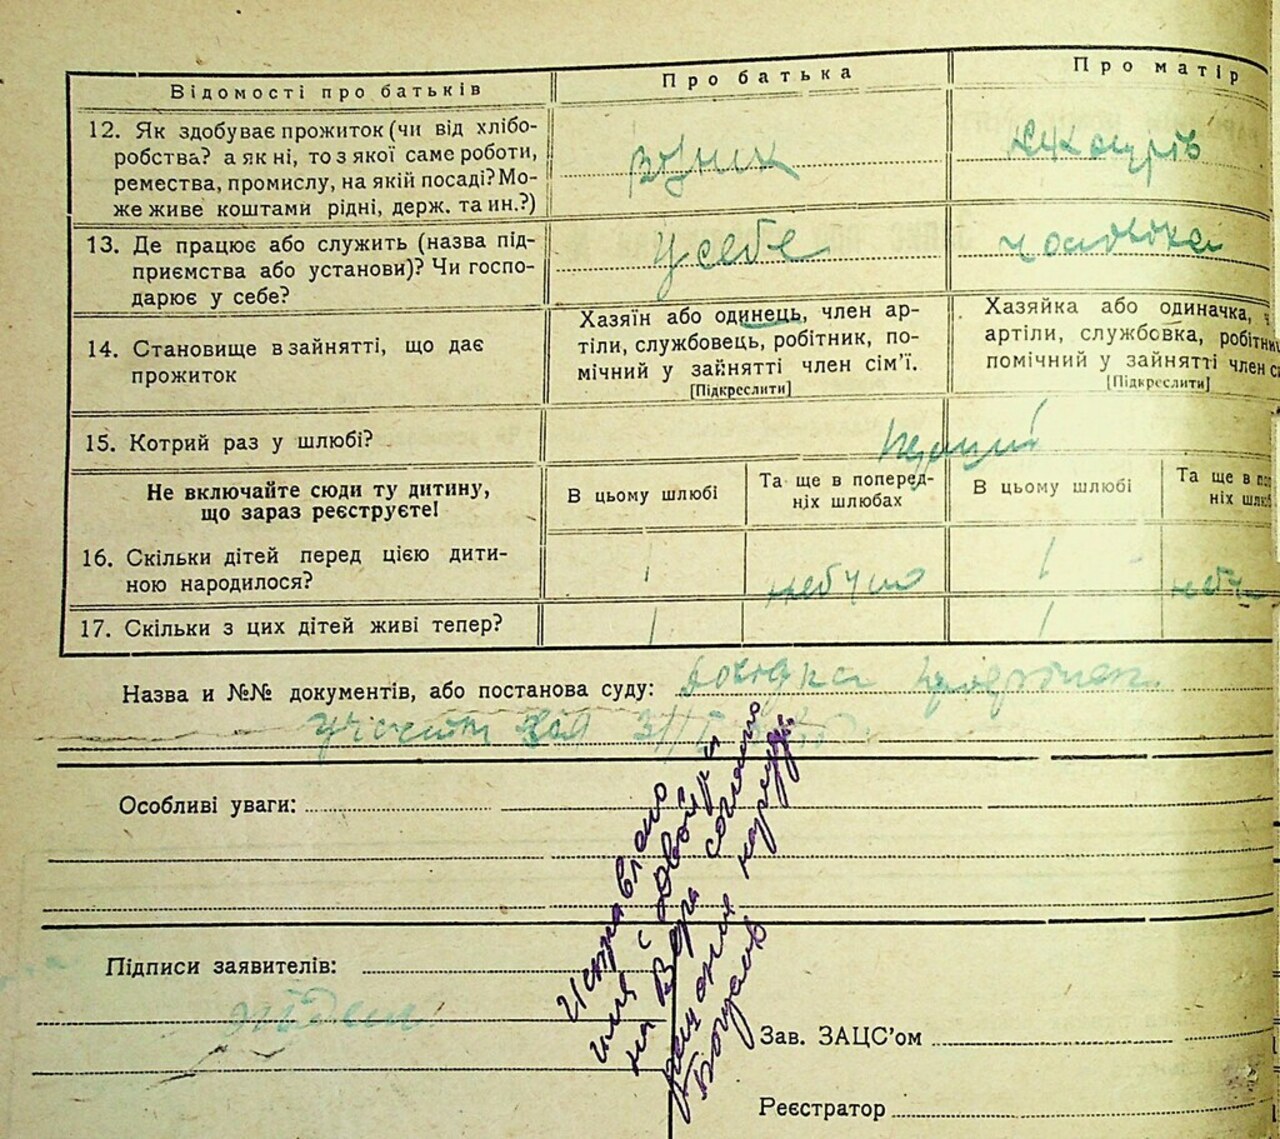 Відомості про батьків
Про батька
Про матір
12. Як здобуває прожиток (чи від хлібо-
робства? а як ні, то з якої саме роботи,
ремества, промислу, на якій посаді? Мо-
же живе коштами рідні, держ. та ин.?)
візник
13. Де працює або служить (назва під-
приємства або установи)? Чи госпо-
дарює у себе?
у себе
чоловіка
14. Становище в зайнятті, що дає
прожиток
Хазяїн або одинець, член ар-
тіли, службовець, робітник, по-
мічний у зайнятті член сім'ї.
[Підкреслити]
Хазяйка або одиначка, ч
артіли, службовка, робітни
помічний у зайнятті член с
[Підкреслити]
15. Котрий раз у шлюбі?
Не включайте сюди ту дитину,
що зараз реєструєте!
В цьому шлюбі
Та ще в поперед-
ніх шлюбах
В цьому шлюбі
Та ще в по
ніх шлю
16. Скільки дітей перед цією дити-
ною народилося?
1
небуло
1
небу
17. Скільки з цих дітей живі тепер?
1
1
Назва и №№ документів, або постанова суду: довідка
Особливі уваги:
Исправлено
имя с
на Вера согласно
Підписи заявителів:
Зав. ЗАЦС'ом
Реєстратор